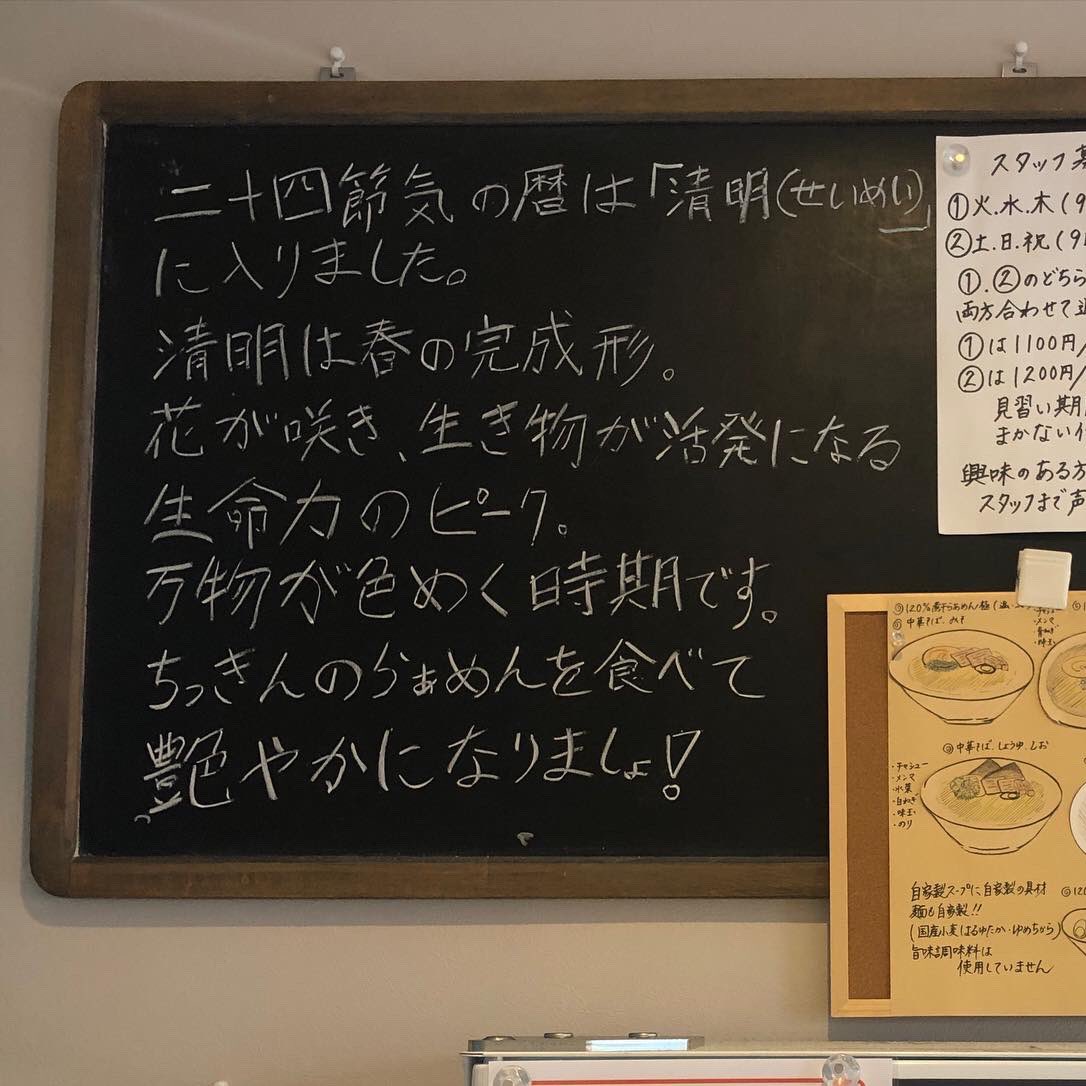 二十四節気の暦は「清明(せいめい)」
に入りました。
清明は春の完成形。
花が咲き、生き物が活発になる
生命力のピーク。
万物が色めく時期です。
ちっきんのらぁめんを食べて
艶やかになりましょ!
スタッフ募
①火.水.木(9
②土.日.祝(9
①.②のどちら
両方合わせて週
①は1100円/
②は1200円/
見習い期
まかない付
興味のある方
スタッフまで声
⑤中華そば.みそ
・チャシュー
・メンマ
・青ねぎ
・味玉
③中華そば.しょうゆ.しお
・チャシュー
・メンマ
・水菜
・白ねぎ
・味玉
・のり
自家製スープに自家製の具材
麺も自家製!!
(国産小麦はるゆたか・ゆめちから)
旨味調味料は
使用していません